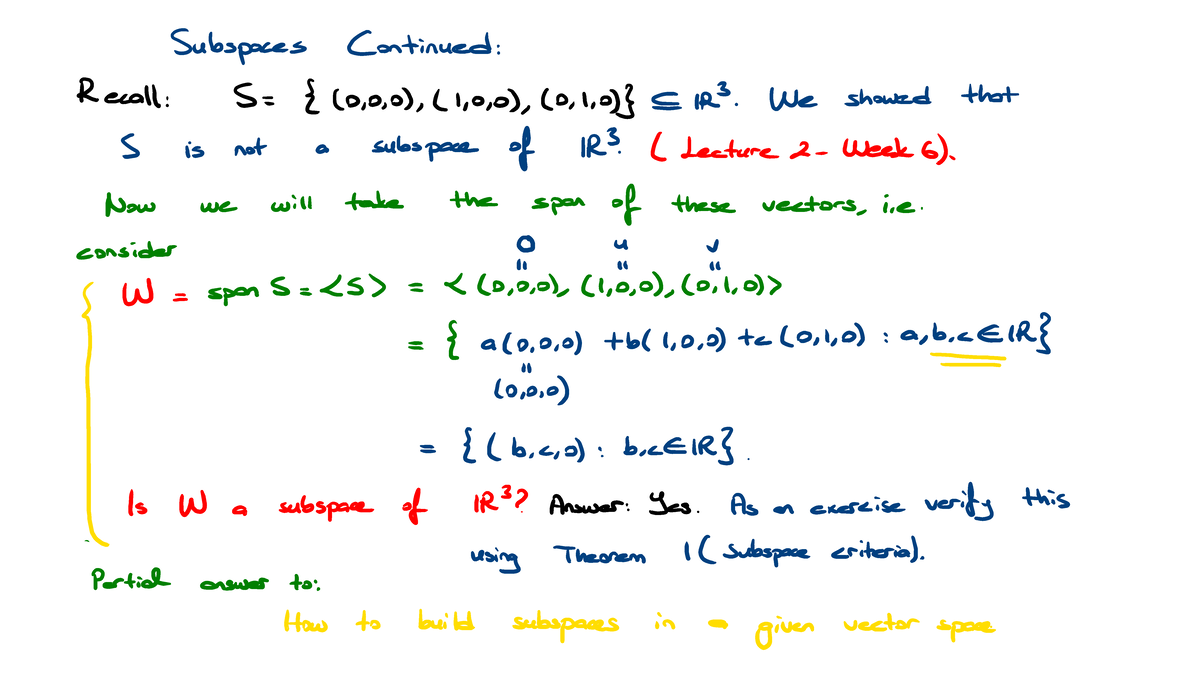 Subspaces Continued:
Recall: S = { (0,0,0), (1,0,0), (0,1,0)} ⊆ IR³. We showed that
S is not a subspace of IR³. (Lecture 2 - Week 6).
Now we will take the span of these vectors, i.e.
consider
0 u v
" " "
W = span S = <S> = < (0,0,0), (1,0,0), (0,1,0)>
= { a(0,0,0) + b(1,0,0) + c(0,1,0) : a,b,c ∈ IR}
"
(0,0,0)
= { (b,c,0) : b,c ∈ IR}.
Is W a subspace of IR³? Answer: Yes. As an exercise verify this
using Theorem 1 (Subspace criteria).
Partial answer to:
How to build subspaces in a given vector space